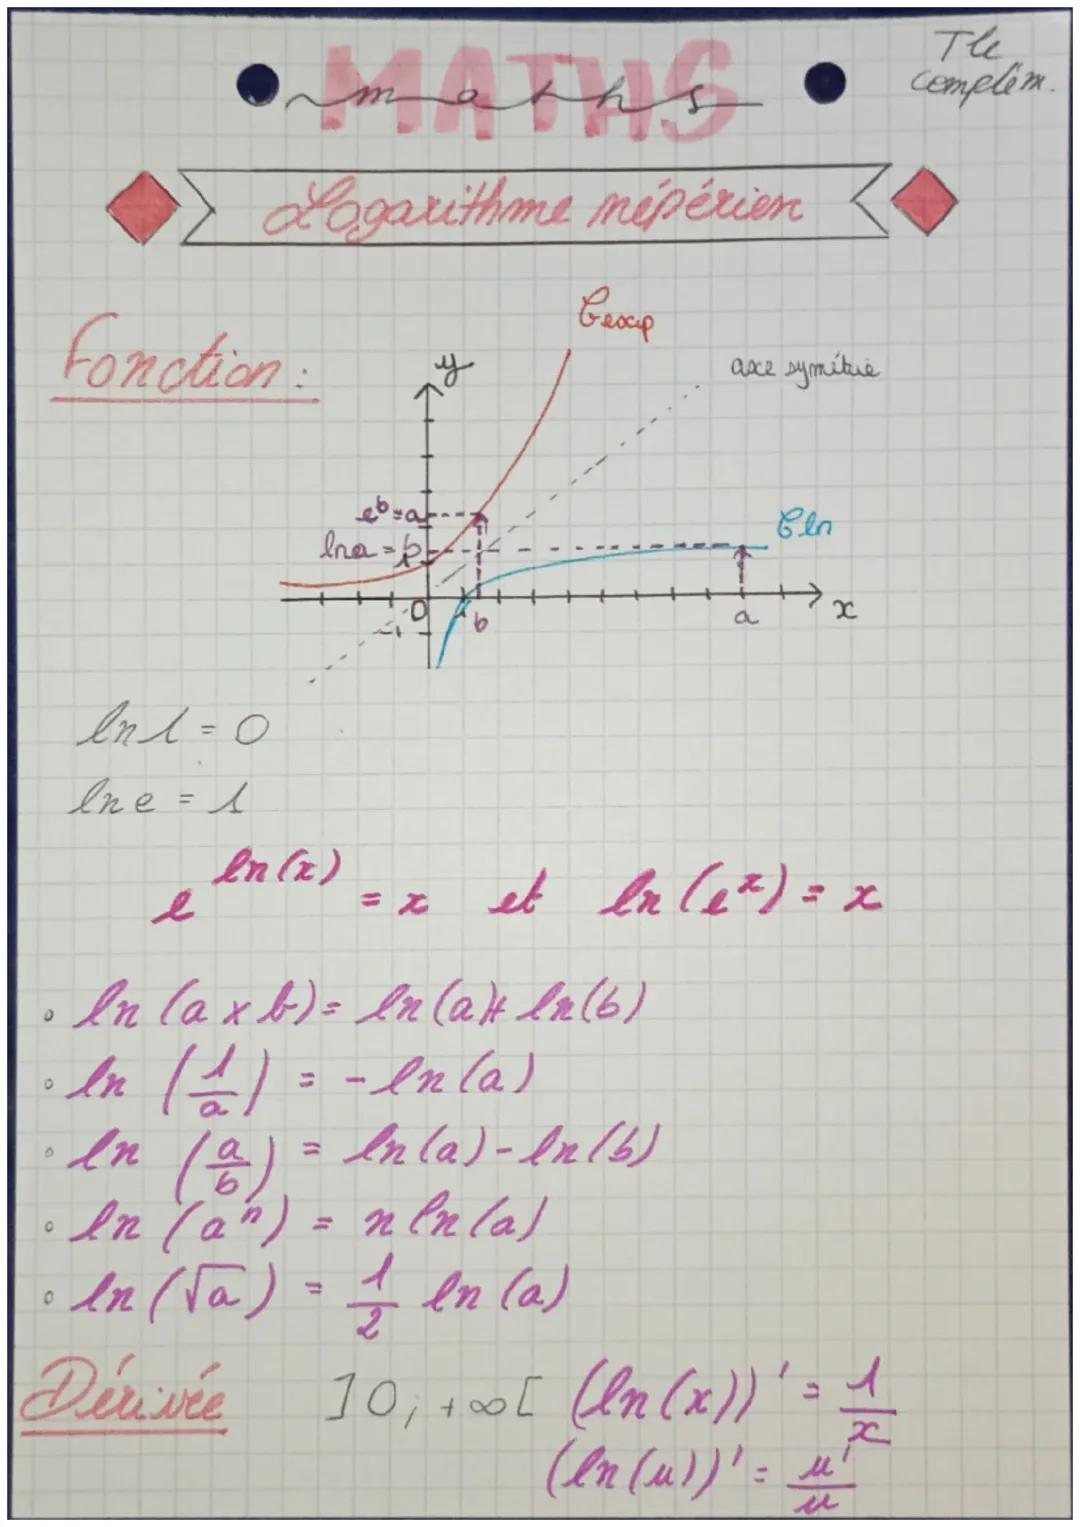 Tle
complém.
MATHS
maths
Logarithme népérien
Fonction :
Cexp
y
axe symétrie
e^b = a
ln a = b
Cln
1
0
1
b
a
x
-1
ln 1 = 0
ln e = 1
e^ln(x) = x et ln(e^x) = x
• ln (a x b) = ln(a) + ln(b)
• ln (1/a) = - ln (a)
• ln (a/b) = ln(a) - ln(b)
• ln (a^n) = n ln(a)
• ln (√a) = 1/2 ln (a)
Dérivée ]0; +∞[ (ln(x))' = 1/x
(ln(u))' = u'/u